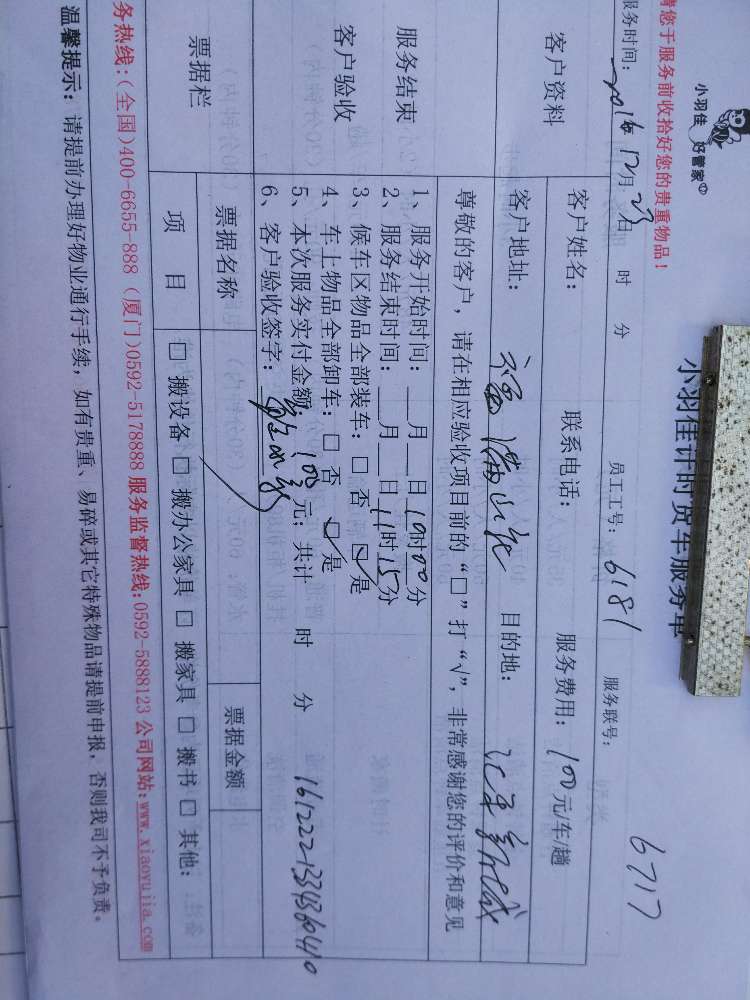 小羽佳 好管家
小羽佳计时货车服务单
请您于服务前收拾好您的贵重物品！
服务时间：2016年12月23日 时 分 员工工号：6181 服务联号：6717
客户资料
客户姓名： 联系电话： 服务费用：100元/车/趟
客户地址： 目的地：
尊敬的客户，请在相应验收项目前的“□”打“√”，非常感谢您的评价和意见
服务结束
客户验收
1、服务开始时间：___月___日10时00分
2、服务结束时间：___月___日11时15分
3、候车区物品全部装车：□ 否 ☑是
4、车上物品全部卸车：□ 否 ☑是
5、本次服务实付金额 100元；共计 时 分
6、客户验收签字：
161222-1334360410
票据栏
票据名称 票据金额
项 目 □ 搬设备 □ 搬办公家具 □ 搬家具 □ 搬书 □ 其他：
务热线：(全国)400-6655-888 (厦门)0592-5178888 服务监督热线：0592-5888123 公司网站：www.xiaoyujia.com
温馨提示：请提前办理好物业通行手续，如有贵重、易碎或其它特殊物品请提前申报，否则我司不予负责。